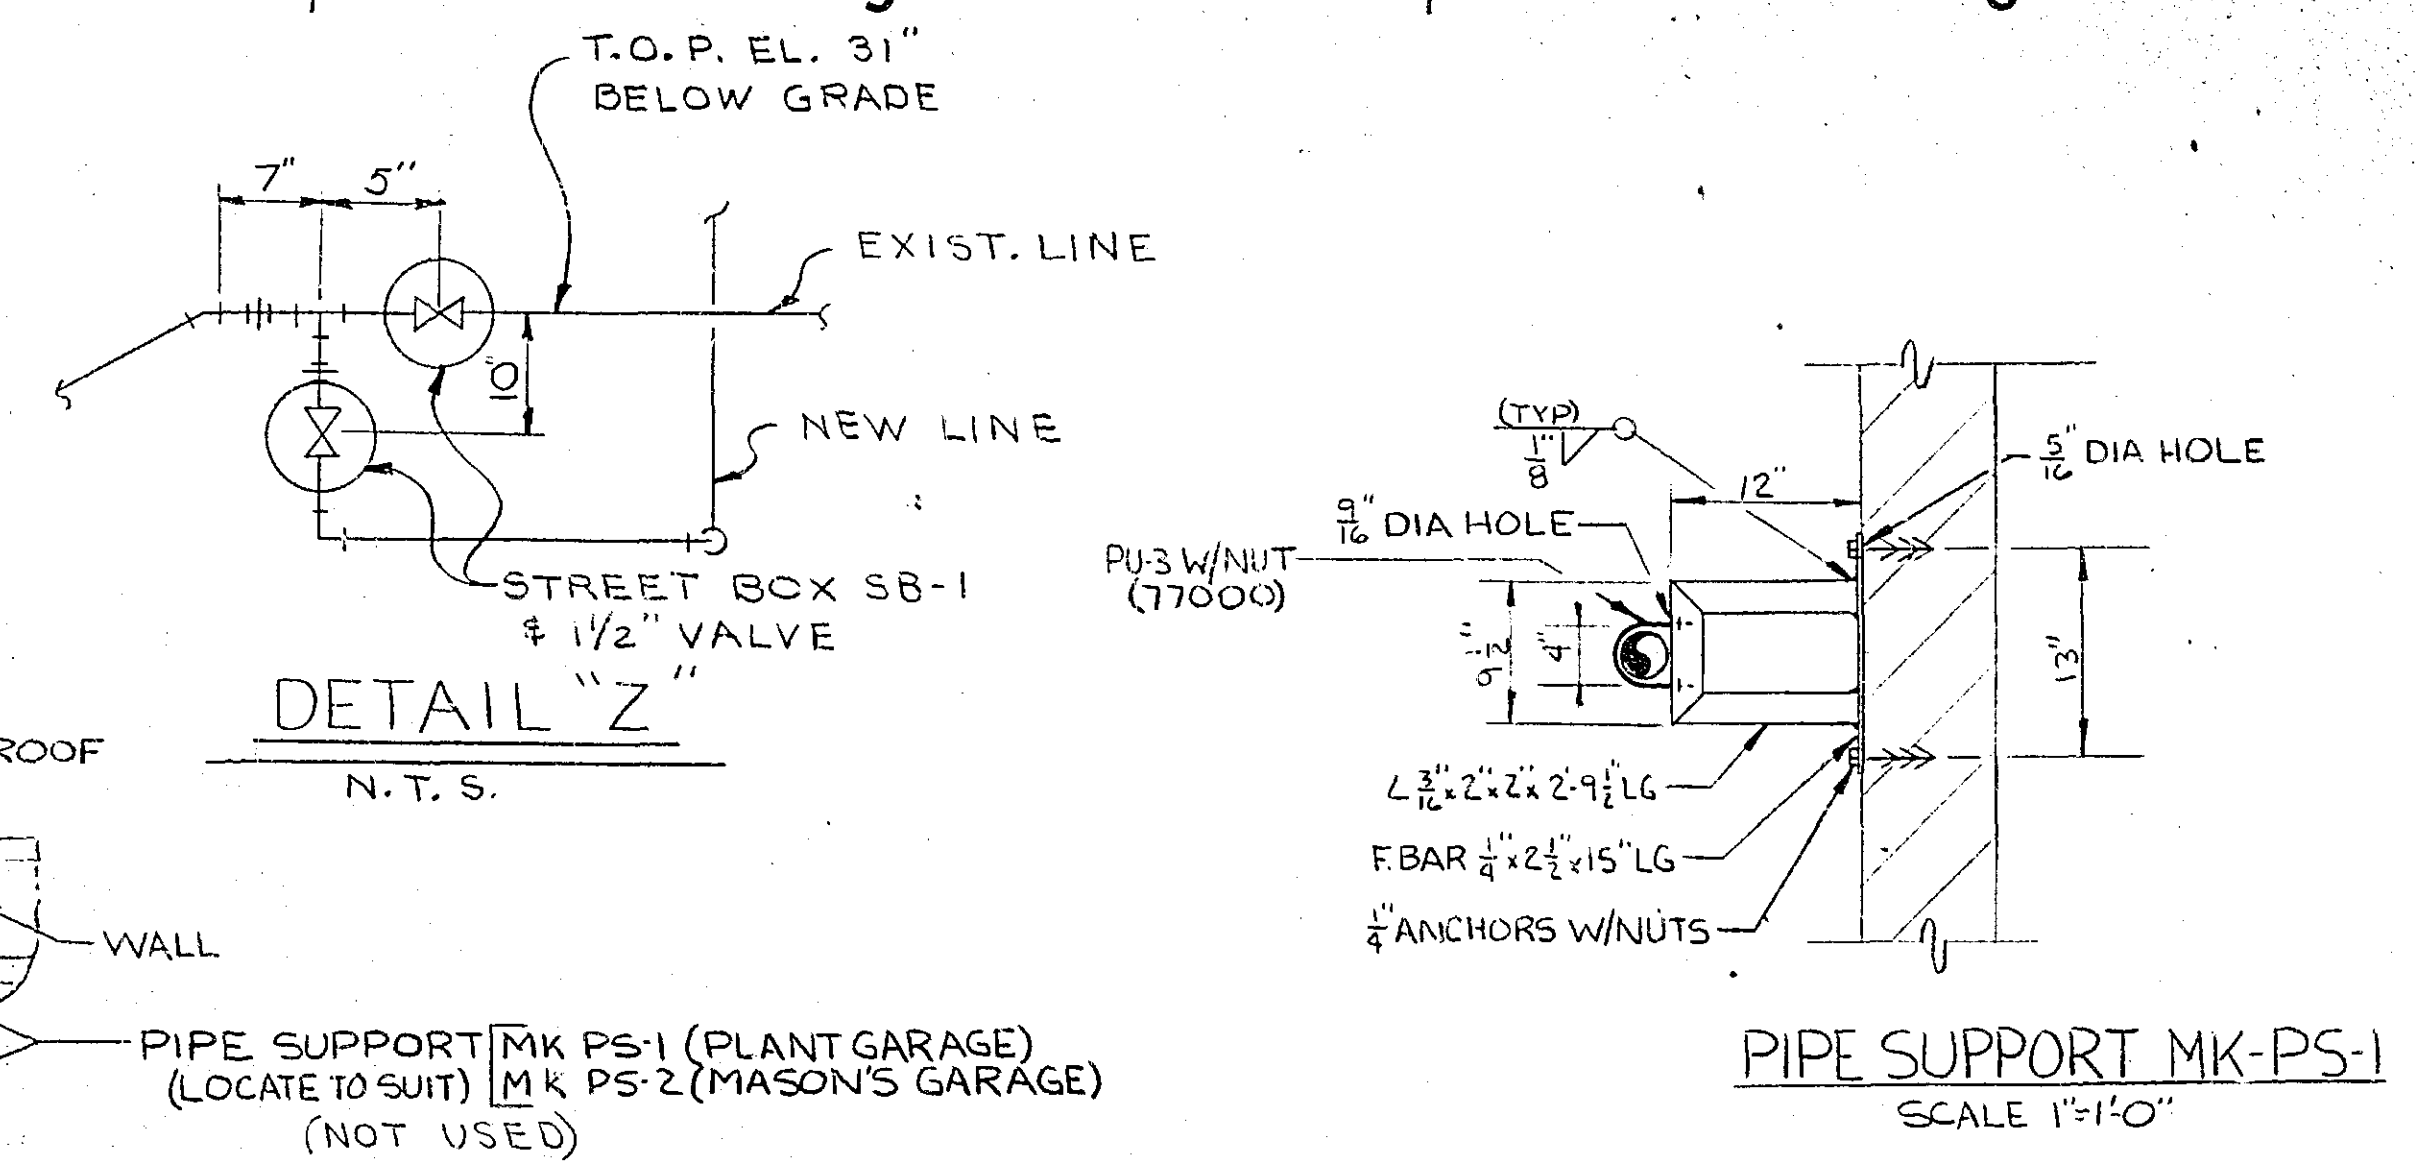 T.O.P. EL. 31"
BELOW GRADE
7"
5"
EXIST. LINE
10"
NEW LINE
STREET BOX SB-1
& 1 1/2" VALVE
DETAIL "Z"
N.T.S.
ROOF
WALL
PIPE SUPPORT MK PS-1 (PLANT GARAGE)
(LOCATE TO SUIT) MK PS-2 (MASON'S GARAGE)
(NOT USED)
(TYP)
1/8"
5/16" DIA HOLE
12"
9/16" DIA HOLE
PU-3 W/NUT
(77000)
9 1/2"
4"
13"
L 3/16" x 2" x 2" x 2'-9 1/2" LG
F. BAR 1/4" x 2 1/2" x 15" LG
1/4" ANCHORS W/NUTS
PIPE SUPPORT MK-PS-1
SCALE 1"=1'-0"